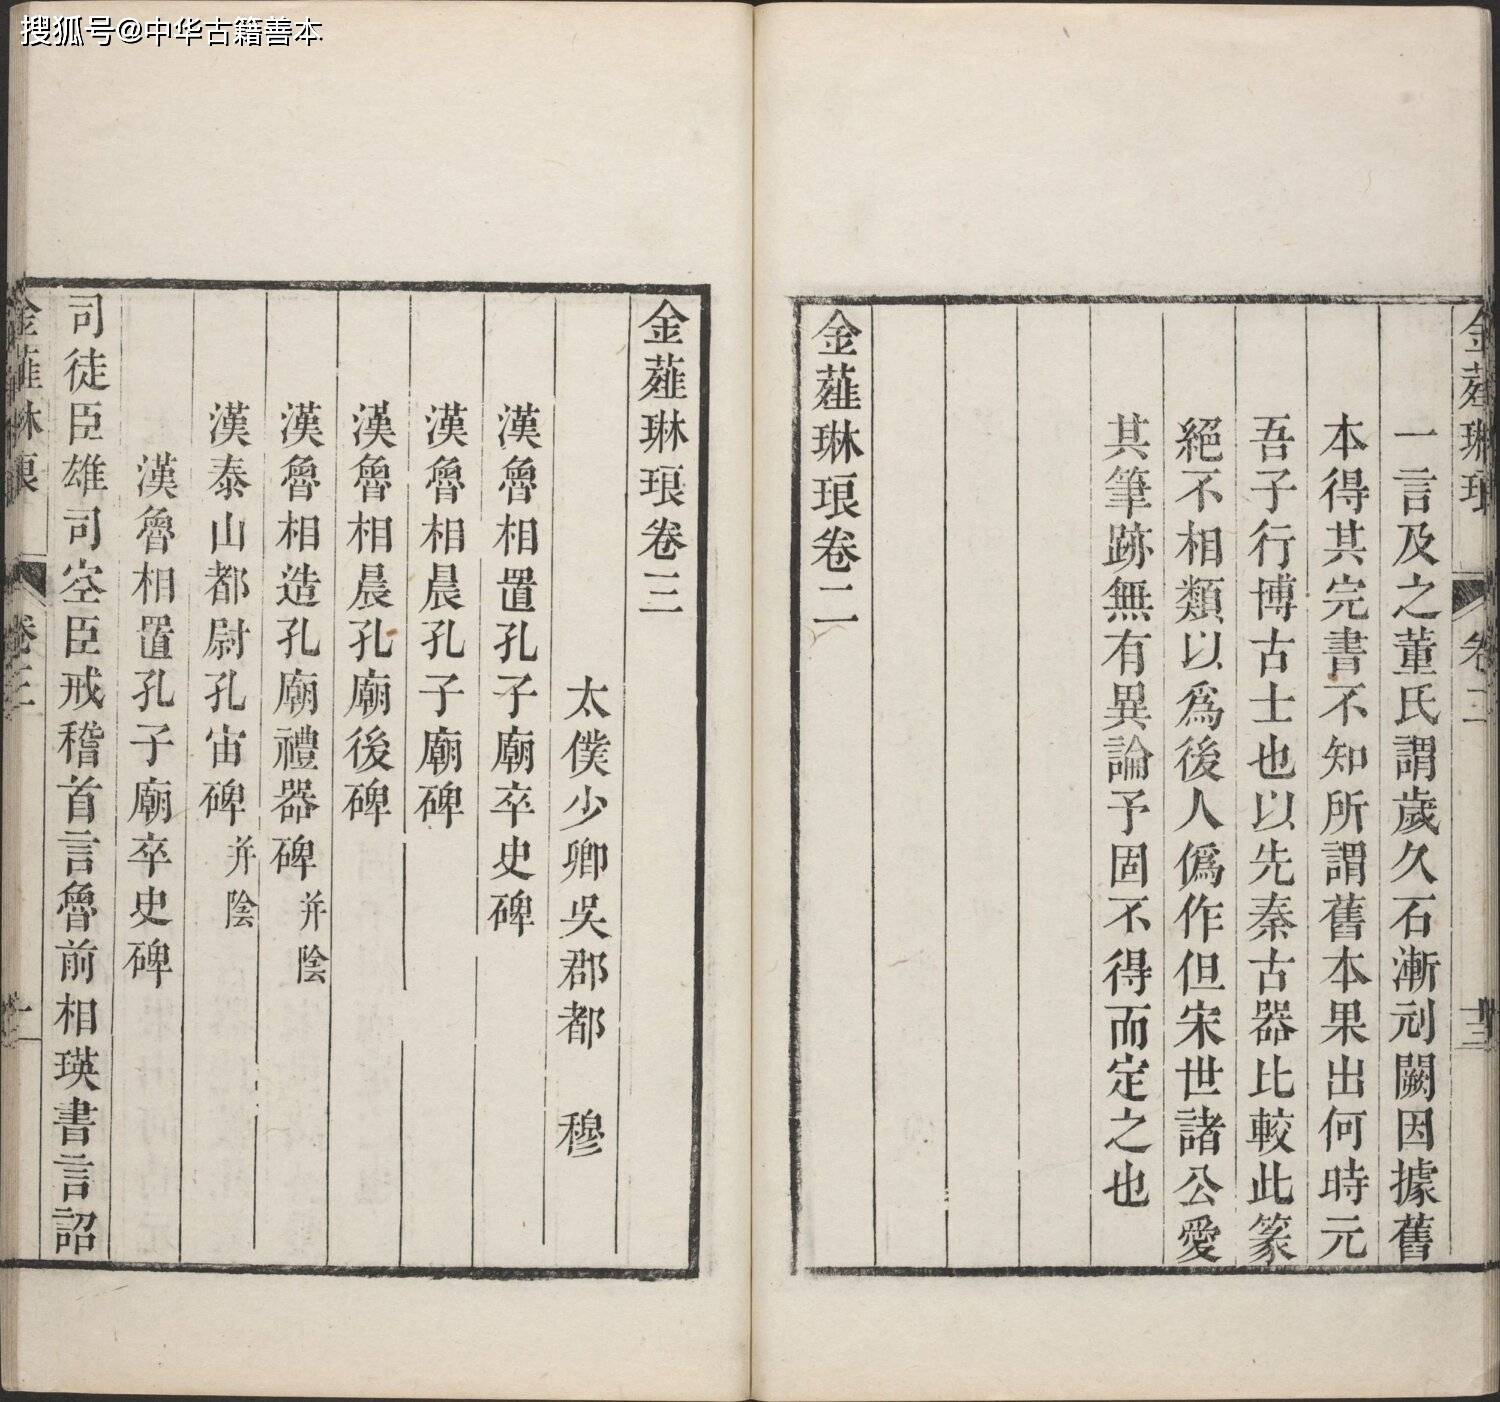 搜狐号@中华古籍善本
金薤琳琅
卷二
十三
一言及之董氏謂歲久石漸刓闕因據舊
本得其完書不知所謂舊本果出何時元
吾子行博古士也以先秦古器比較此篆
絕不相類以為後人偽作但宋世諸公愛
其筆跡無有異論予固不得而定之也
金薤琳琅卷二
金薤琳琅卷三
太僕少卿吳郡都 穆
漢魯相置孔子廟卒史碑
漢魯相晨孔子廟碑
漢魯相晨孔廟後碑
漢魯相造孔廟禮器碑并陰
漢泰山都尉孔宙碑并陰
漢魯相置孔子廟卒史碑
司徒臣雄司空臣戒稽首言魯前相瑛書言詔
金薤琳琅
卷三
一